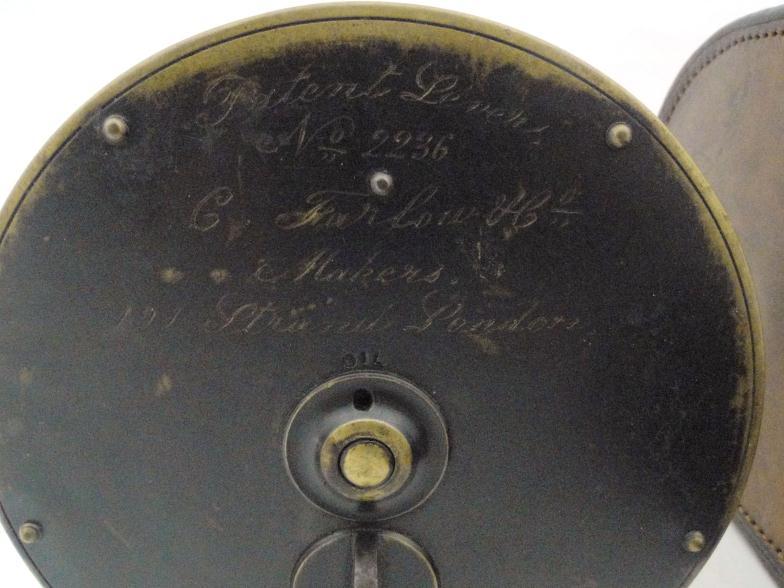 Patent Lever
No 2236
C. Farlow & Co
Makers.
191 Strand London
OIL